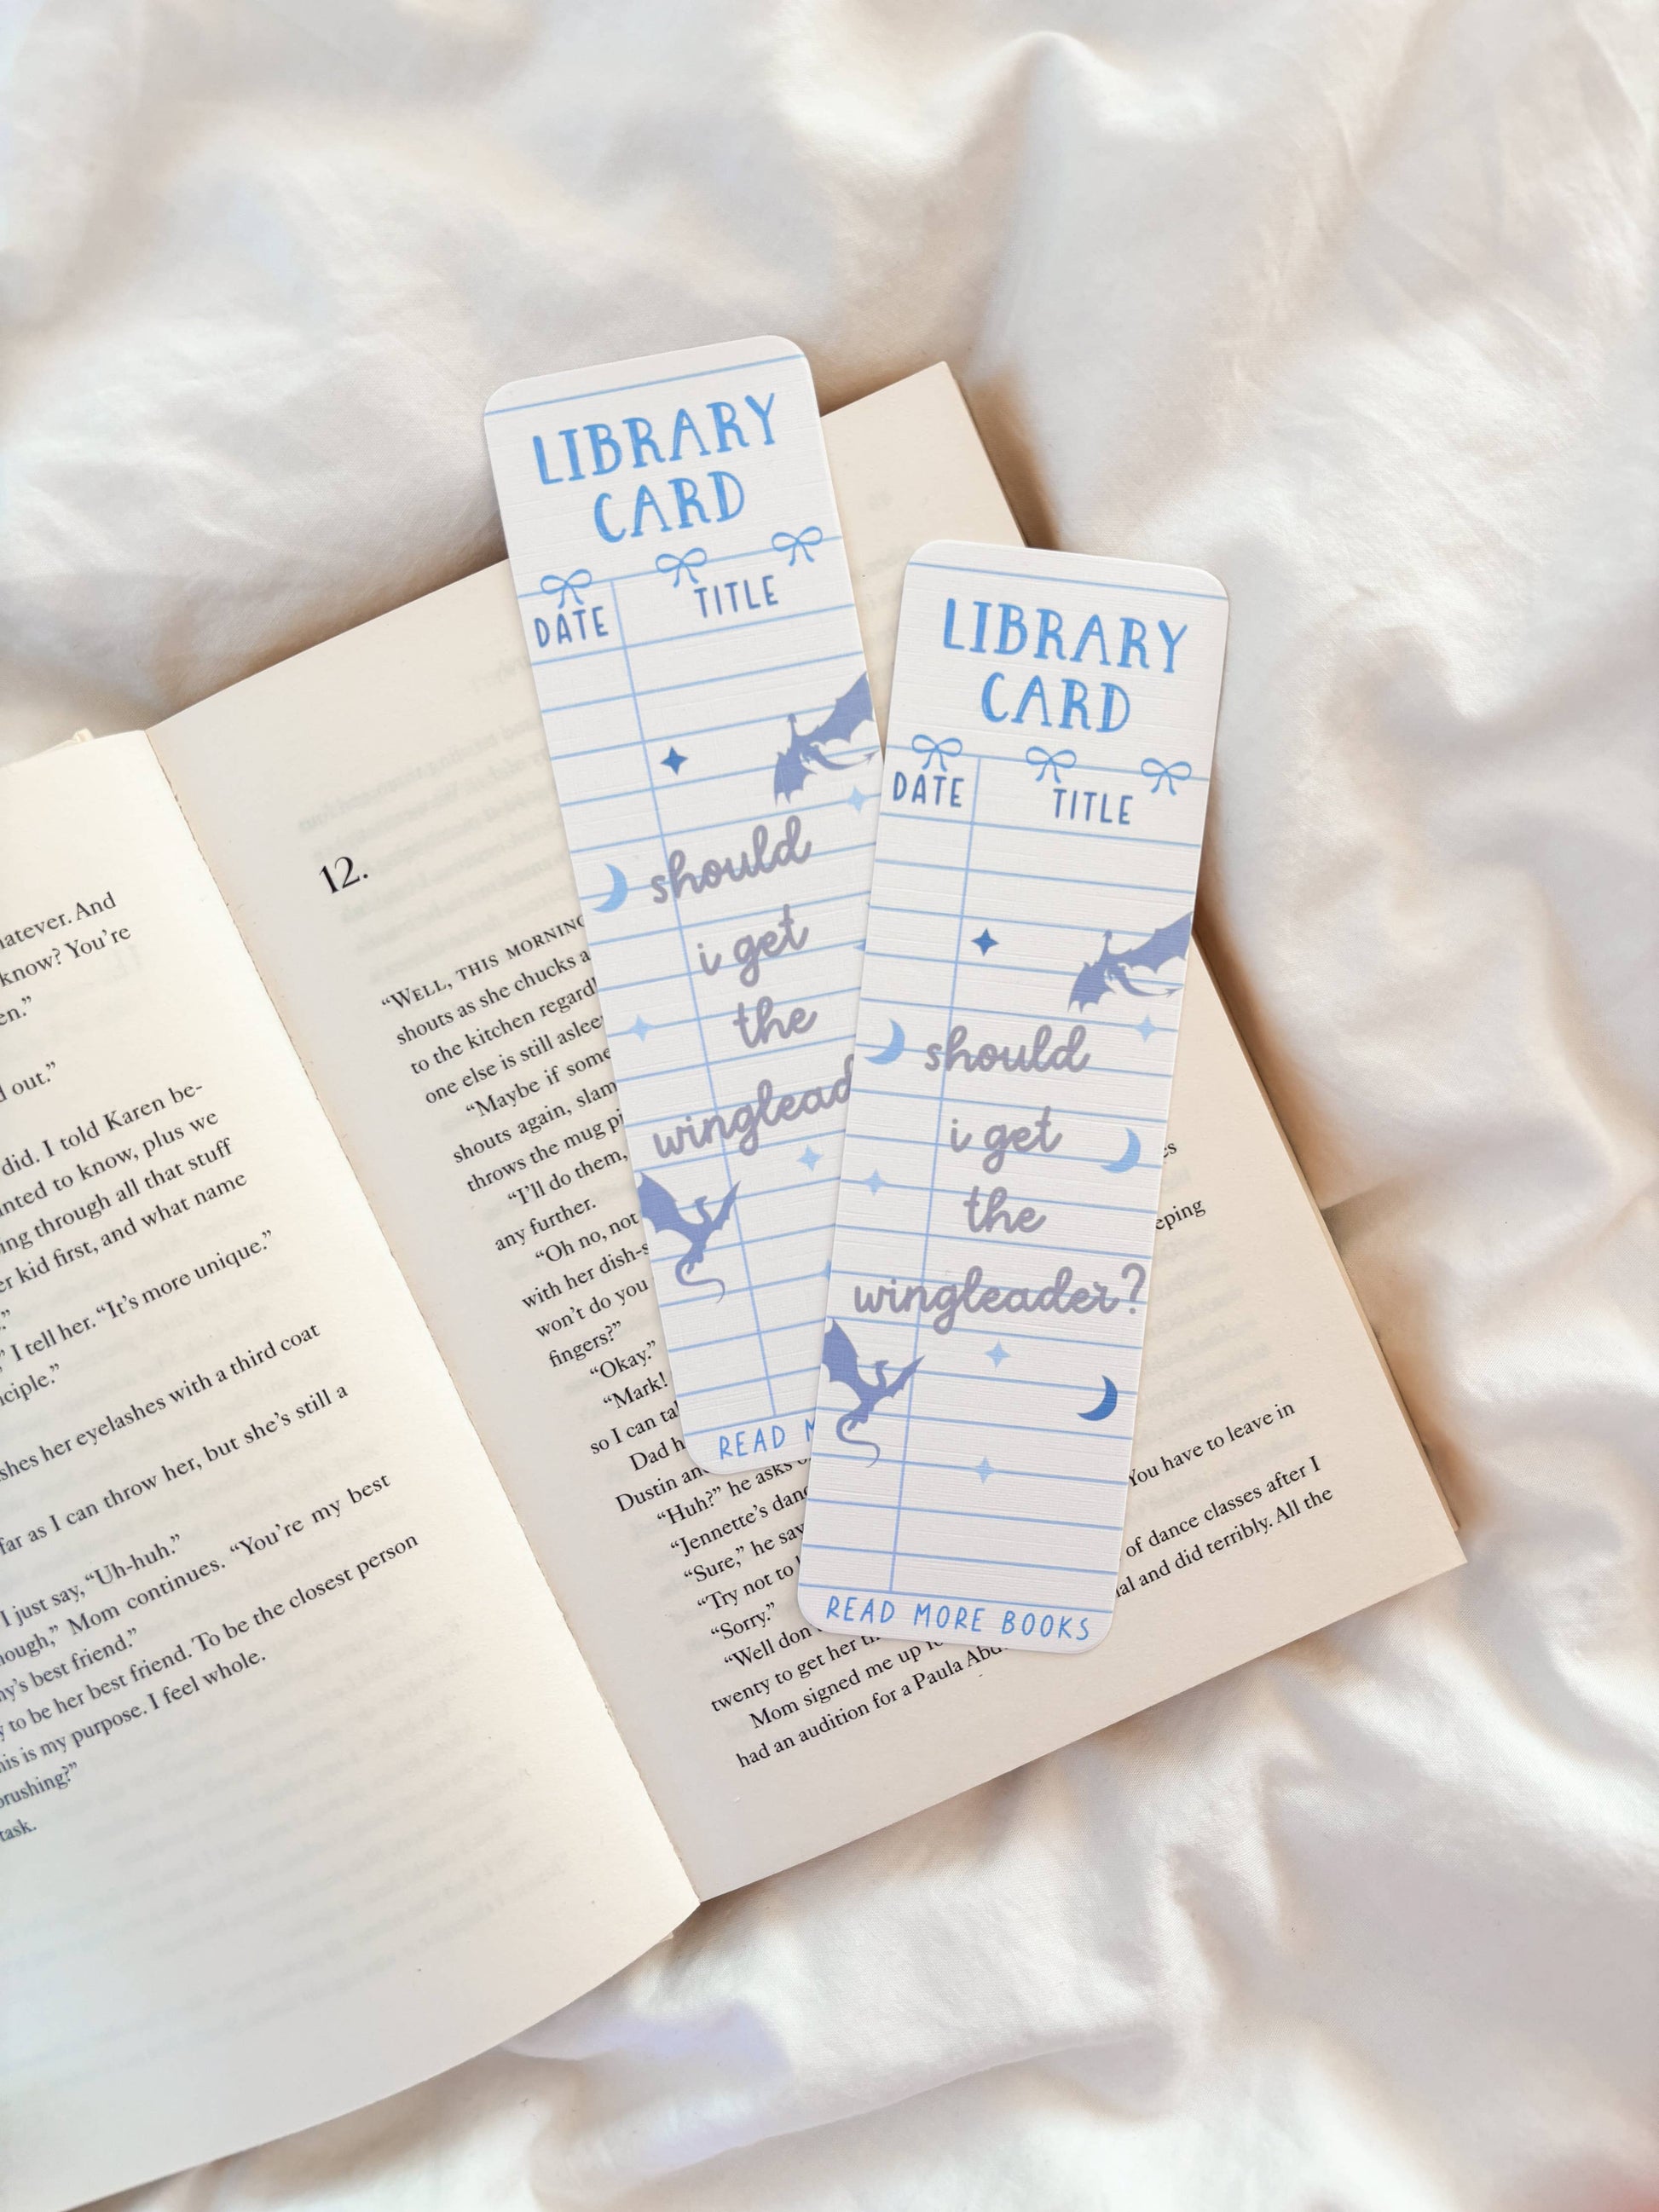 LIBRARY
CARD
DATE TITLE
should
i get
the
winglead
READ
LIBRARY
CARD
DATE TITLE
should
i get
the
wingleader?
READ MORE BOOKS
And
know? You're
out."
did. I told Karen be-
to know, plus we
through all that stuff
kid first, and what name
I tell her. "It's more unique."
her eyelashes with a third coat
far as I can throw her, but she's still a
I just say, "Uh-huh."
Mom continues. "You're my best
best friend."
to be her best friend. To be the closest person
is my purpose. I feel whole.
task.
12.
"WELL, THIS MORNING
shouts as she chucks
to the kitchen
one else is still
"Maybe if
shouts again,
throws the mug
"I'll do them,
any further.
"Oh no, not
with her
won't do you
fingers?"
"Okay."
"Mark!
so I can
Dad
Dustin
"Huh?" he asks
"Jennette's
"Sure," he
"Try not to
"Sorry."
"Well
twenty to get her
Mom signed me up
had an audition for a Paula
You have to leave in
of dance classes after I
and did terribly. All the